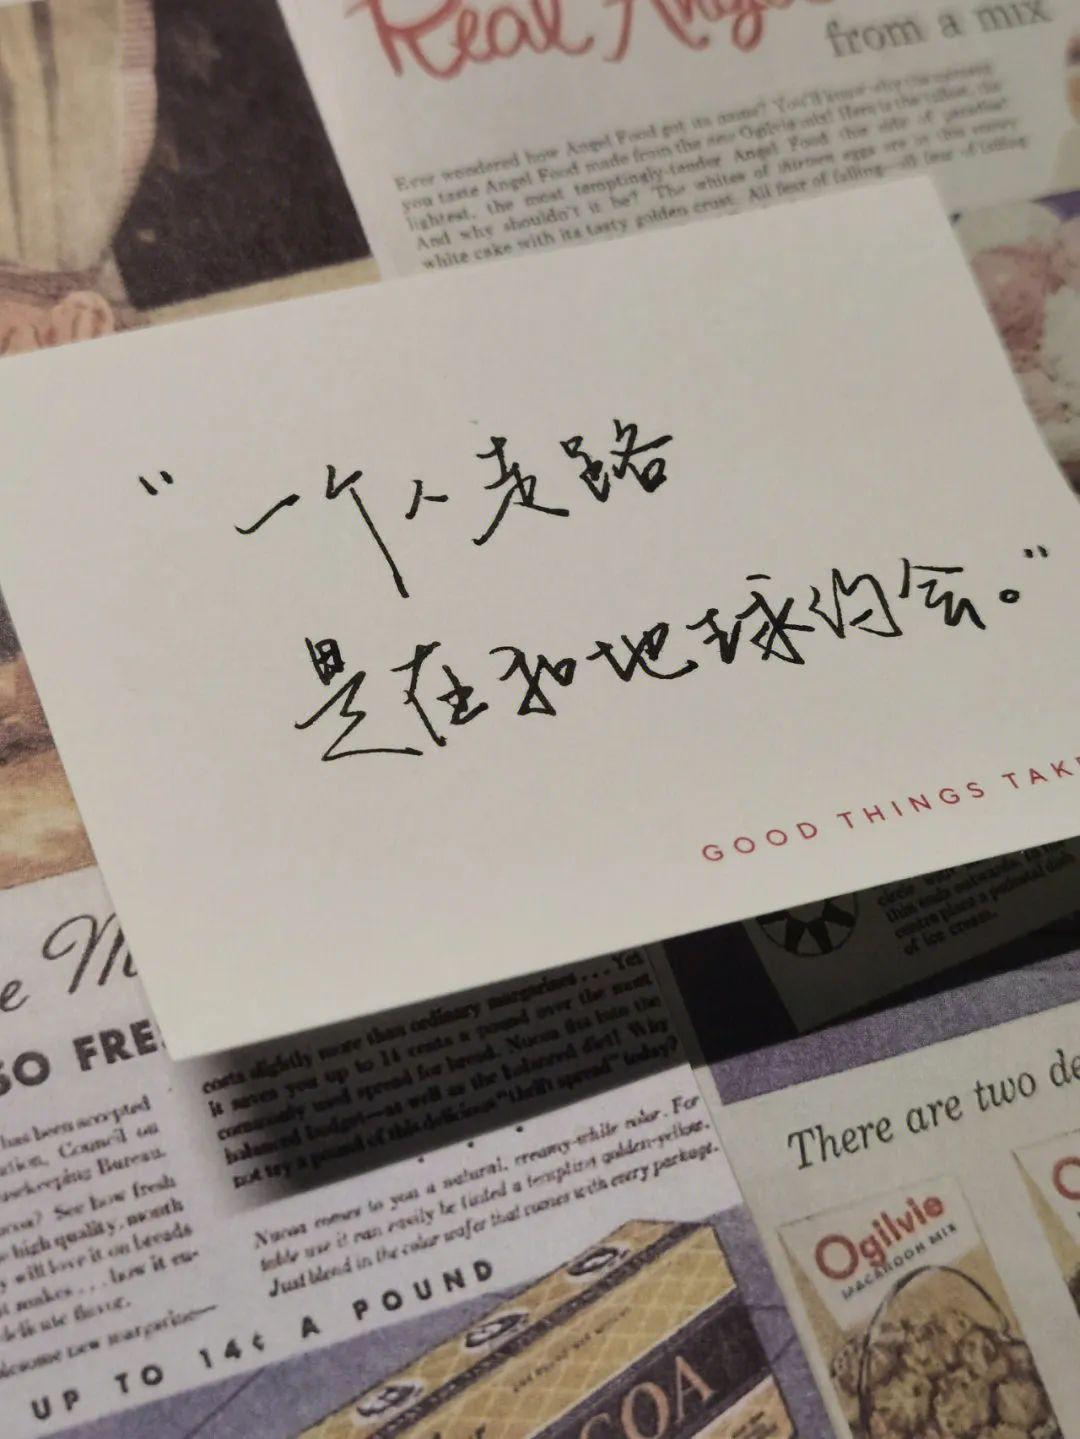 Real
from a mix
Ever wondered how Angel Food got its name? You'll know why the moment
you taste Angel Food made from the new Ogilvie mix! Here is the tallest, the
lightest, the most temptingly-tender Angel Food this side of paradise!
And why shouldn't it be? The whites of thirteen eggs are in this snowy
white cake with its tasty golden crust. All fear of failing—all fear of falling
“一个人走路
是在和地球约会。”
GOOD THINGS TAKE
circle with
thin ends outwards. In the
centre place a
of ice cream.
SO FRE
has been accepted
Council on
Bureau.
See how fresh
high quality, month
will love it on breads
makes...how it en-
delicate flavor.
new margarine—
costs slightly more than ordinary margarines...Yet
it saves you up to 14 cents a pound over the most
commonly used spread for bread. Nucoa fits into the
balanced budget—as well as the balanced diet! Why
not try a pound of this delicious "thrift spread" today?
Nucoa comes to you a natural, creamy-white color. For
table use it can easily be tinted a tempting golden-yellow.
Just blend in the color wafer that comes with every package.
UP TO 14¢ A POUND
COA
There are two de
Ogilvie
MACAROON MIX